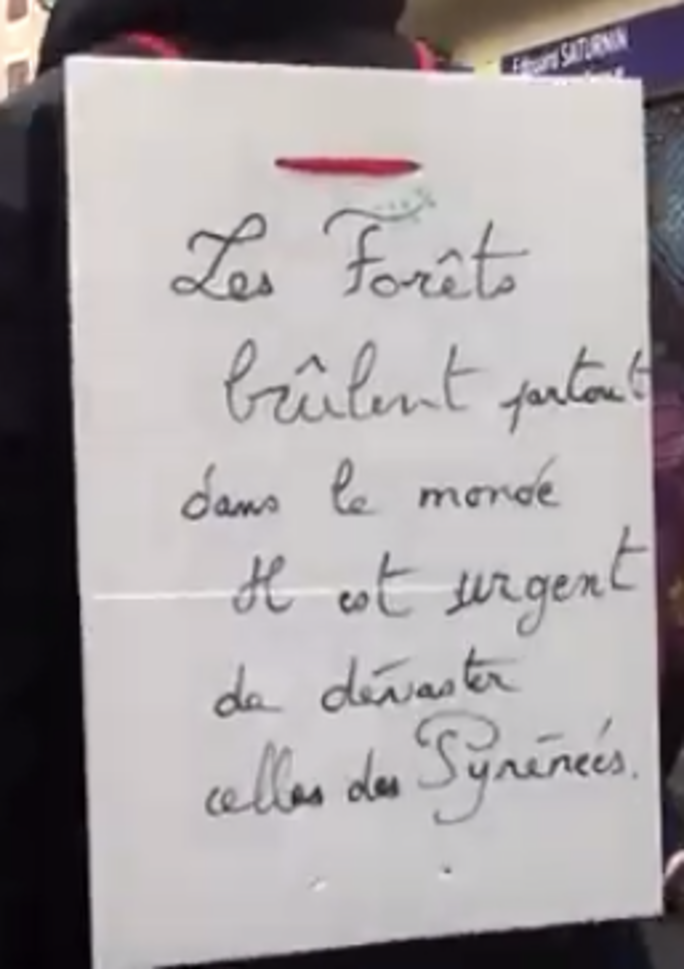 Edouard SATURNIN
Les Forêts
brûlent partout
dans le monde
Il est urgent
de dévaster
celles des Pyrénées.